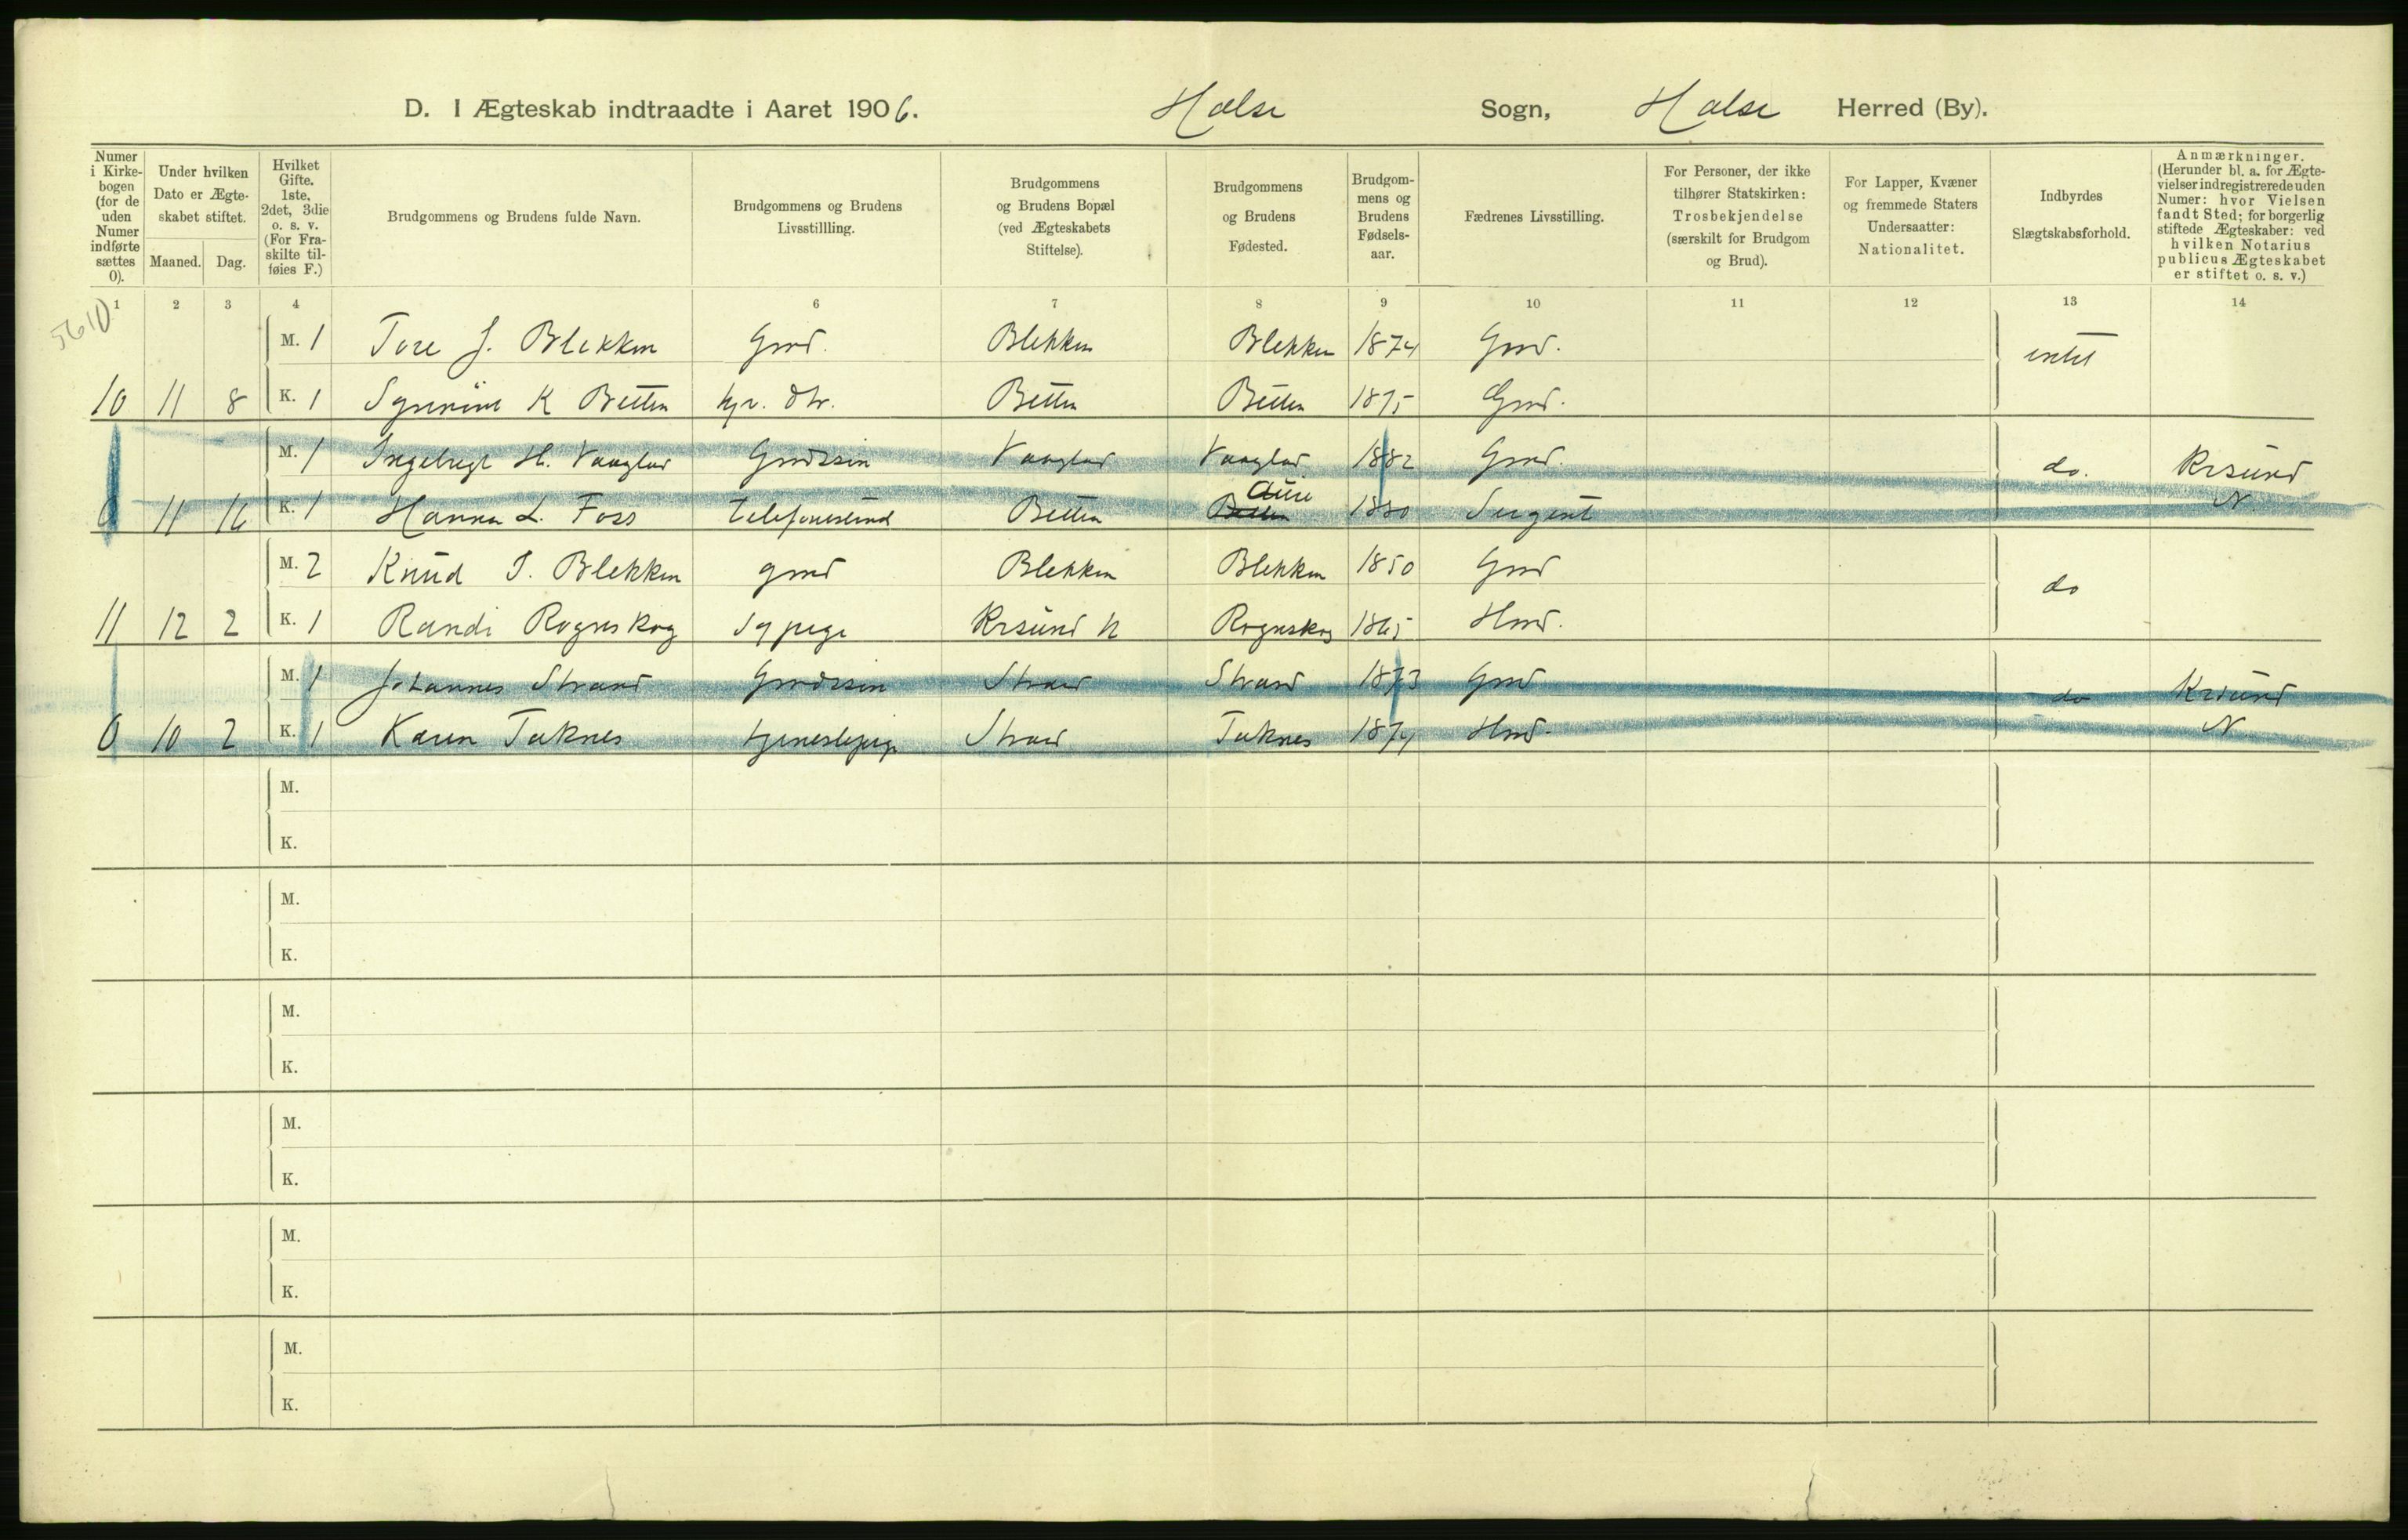 D. I Ægteskab indtraadte i Aaret 1906. Halse Sogn, Halse Herred (By).
Numer i Kirkebogen (for de uden Numer indførte sættes 0).
Under hvilken Dato er Ægteskabet stiftet.
Maaned. Dag.
Hvilket Gifte. 1ste, 2det, 3die o. s. v. (For Fraskilte tilføies F.)
Brudgommens og Brudens fulde Navn.
Brudgommens og Brudens Livsstillling.
Brudgommens og Brudens Bopæl (ved Ægteskabets Stiftelse).
Brudgommens og Brudens Fødested.
Brudgommens og Brudens Fødselsaar.
Fædrenes Livsstilling.
For Personer, der ikke tilhører Statskirken: Trosbekjendelse (særskilt for Brudgom og Brud).
For Lapper, Kvæner og fremmede Staters Undersaatter: Nationalitet.
Indbyrdes Slægtskabsforhold.
Anmærkninger. (Herunder bl. a. for Ægtevielser indregistrerede uden Numer: hvor Vielsen fandt Sted; for borgerlig stiftede Ægteskaber: ved hvilken Notarius publicus Ægteskabet er stiftet o. s. v.)
1 2 3 4 6 7 8 9 10 11 12 13 14
M. 1 Tore J. Blekken Gmd. Blekken Blekken 1874 Gmd. intet
10 11 8 K. 1 K Betten Betten Betten 1875 Gmd.
M. 1 Ingebrigt H. Vaagland Gmdssøn Vaagland Vaagland 1882 Gmd. do. Krsund
Aure
0 11 16 K. 1 Hanna L. Foss Betten Betten 1880 Sergent N
M. 2 Knud I. Blekken gmd Blekken Blekken 1850 Gmd do
11 12 2 K. 1 Randi Rognskog Sypige Krsund N Rognskog 1865 Hmd.
M. 1 Johannes Strand Gmdssøn Strand Strand 1873 Gmd do Krsund
0 10 2 K. 1 Karen Taknes tjenestepige Strand Taknes 1874 Hmd. N
M.
K.
M.
K.
M.
K.
M.
K.
M.
K.
M.
K.